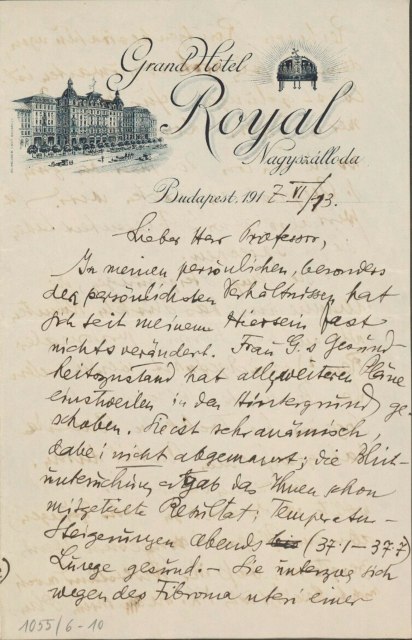 Grand Hôtel
Royal
Nagyszálloda
Budapest, 191 7 VI/13.
Lieber Herr Professor,
In meinen persönlichen, besonders
den persönlichsten Verhältnissen hat
sich seit meinem Hiersein fast
nichts verändert. Frau G.s Gesund-
heitszustand hat alle weiteren Pläne
einstweilen in den Hintergrund ge-
schoben. Sie ist sehr anämisch,
dabei nicht abgemagert; die Blut-
untersuchung ergab das Ihnen schon
mitgeteilte Resultat; Temperatur-
steigerungen abends (37.1-37.7)
Lunge gesund. – Sie unterzog sich
wegen des Fibroma uteri einer
1055/6-10